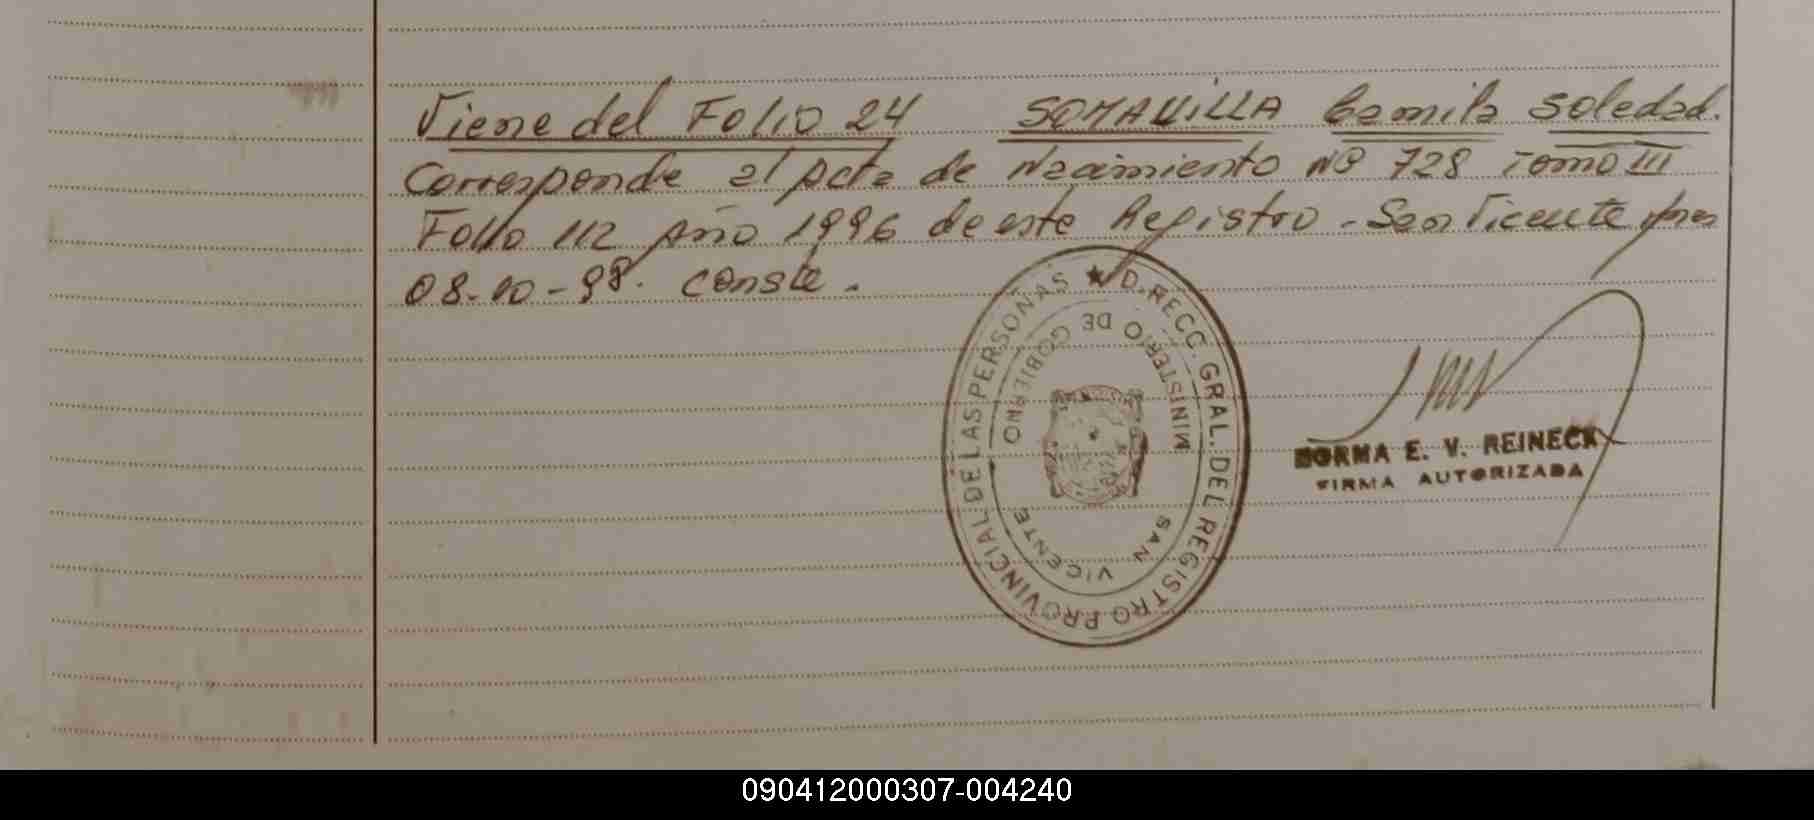 Viene del Folio 24 SOMAVILLA Camila Soledad.
Corresponde al Acta de Nacimiento Nº 728 Tomo III
Folio 112 Año 1996 de este Registro - San Vicente Mnes
08-10-98. Conste.
★ D. RECC. GRAL. DEL REGISTRO PROVINCIAL DE LAS PERSONAS
MINISTERIO DE GOBIERNO
SAN VICENTE
NORMA E. V. REINECK
FIRMA AUTORIZADA
090412000307-004240